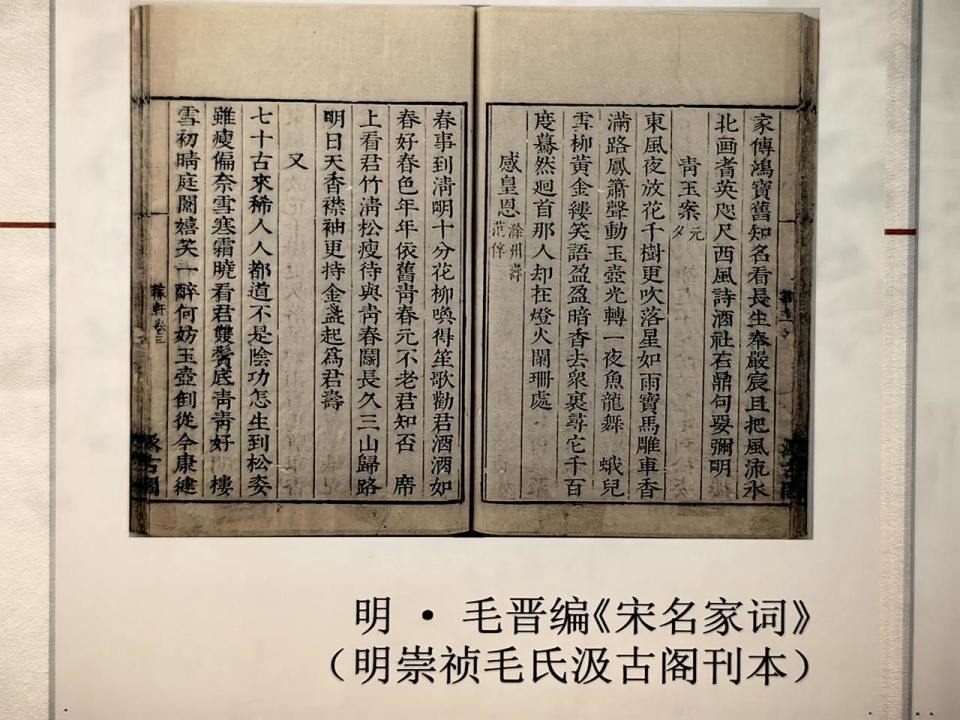 家傳鴻寶舊知名看長生奉嚴宸且把風流水
北画耆英咫尺西風詩酒社石鼎句要彌明
青玉案元夕
東風夜放花千樹更吹落星如雨寶馬雕車香
滿路鳳簫聲動玉壺光轉一夜魚龍舞　蛾兒
雪柳黃金縷笑語盈盈暗香去衆裏尋它千百
度驀然迴首那人却在燈火闌珊處
感皇恩滁州壽范倅
春事到淸明十分花柳喚得笙歌勸君酒酒如
春好春色年年依舊靑春元不老君知否　席
上看君竹淸松瘦待與靑春鬭長久三山歸路
明日天香襟袖更持金盞起爲君壽
又
七十古來稀人人都道不是陰功怎生到松姿
雖瘦偏奈雪寒霜曉看君雙鬢底靑靑好　樓
雪初晴庭闈嬉笑一醉何妨玉壺倒從今康健
稼軒卷三
汲古閣
明·毛晋编《宋名家词》
（明崇祯毛氏汲古阁刊本）